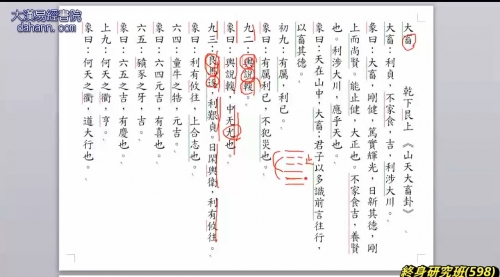 大漢易經書院
dahann.com
大畜 乾下艮上《山天大畜卦》
大畜：利貞，不家食，吉，利涉大川。
彖曰：大畜，剛健，篤實輝光，日新其德，剛
上而尚賢。能止健，大正也。不家食吉，養賢
也。利涉大川，應乎天也。
象曰：天在山中，大畜，君子以多識前言往行，
以畜其德。
初九：有厲，利已。
象曰：有厲利已，不犯災也。
九二：輿說輹。
象曰：輿說輹，中无尤也。
九三：良馬逐，利艱貞。日閑輿衛，利有攸往。
象曰：利有攸往，上合志也。
六四：童牛之牿，元吉。
象曰：六四元吉，有喜也。
六五：豶豕之牙，吉。
象曰：六五之吉，有慶也。
上九：何天之衢，亨。
象曰：何天之衢，道大行也。
終身研究班(598)